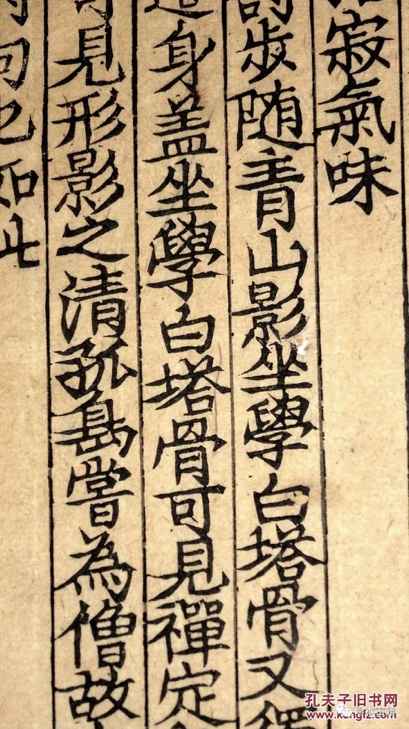 寂氣味
步随青山影坐學白塔骨又
身盖坐學白塔骨可見禪定
可見形影之清孤島嘗為僧故
句也如此
孔夫子旧书网